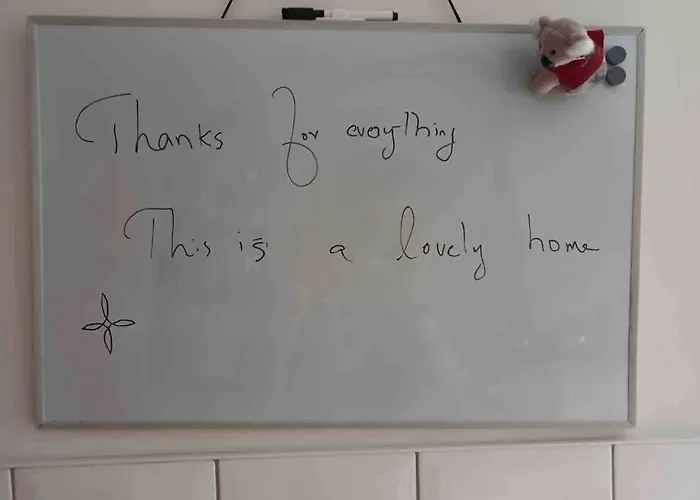 Thanks for everything
This is a lovely home